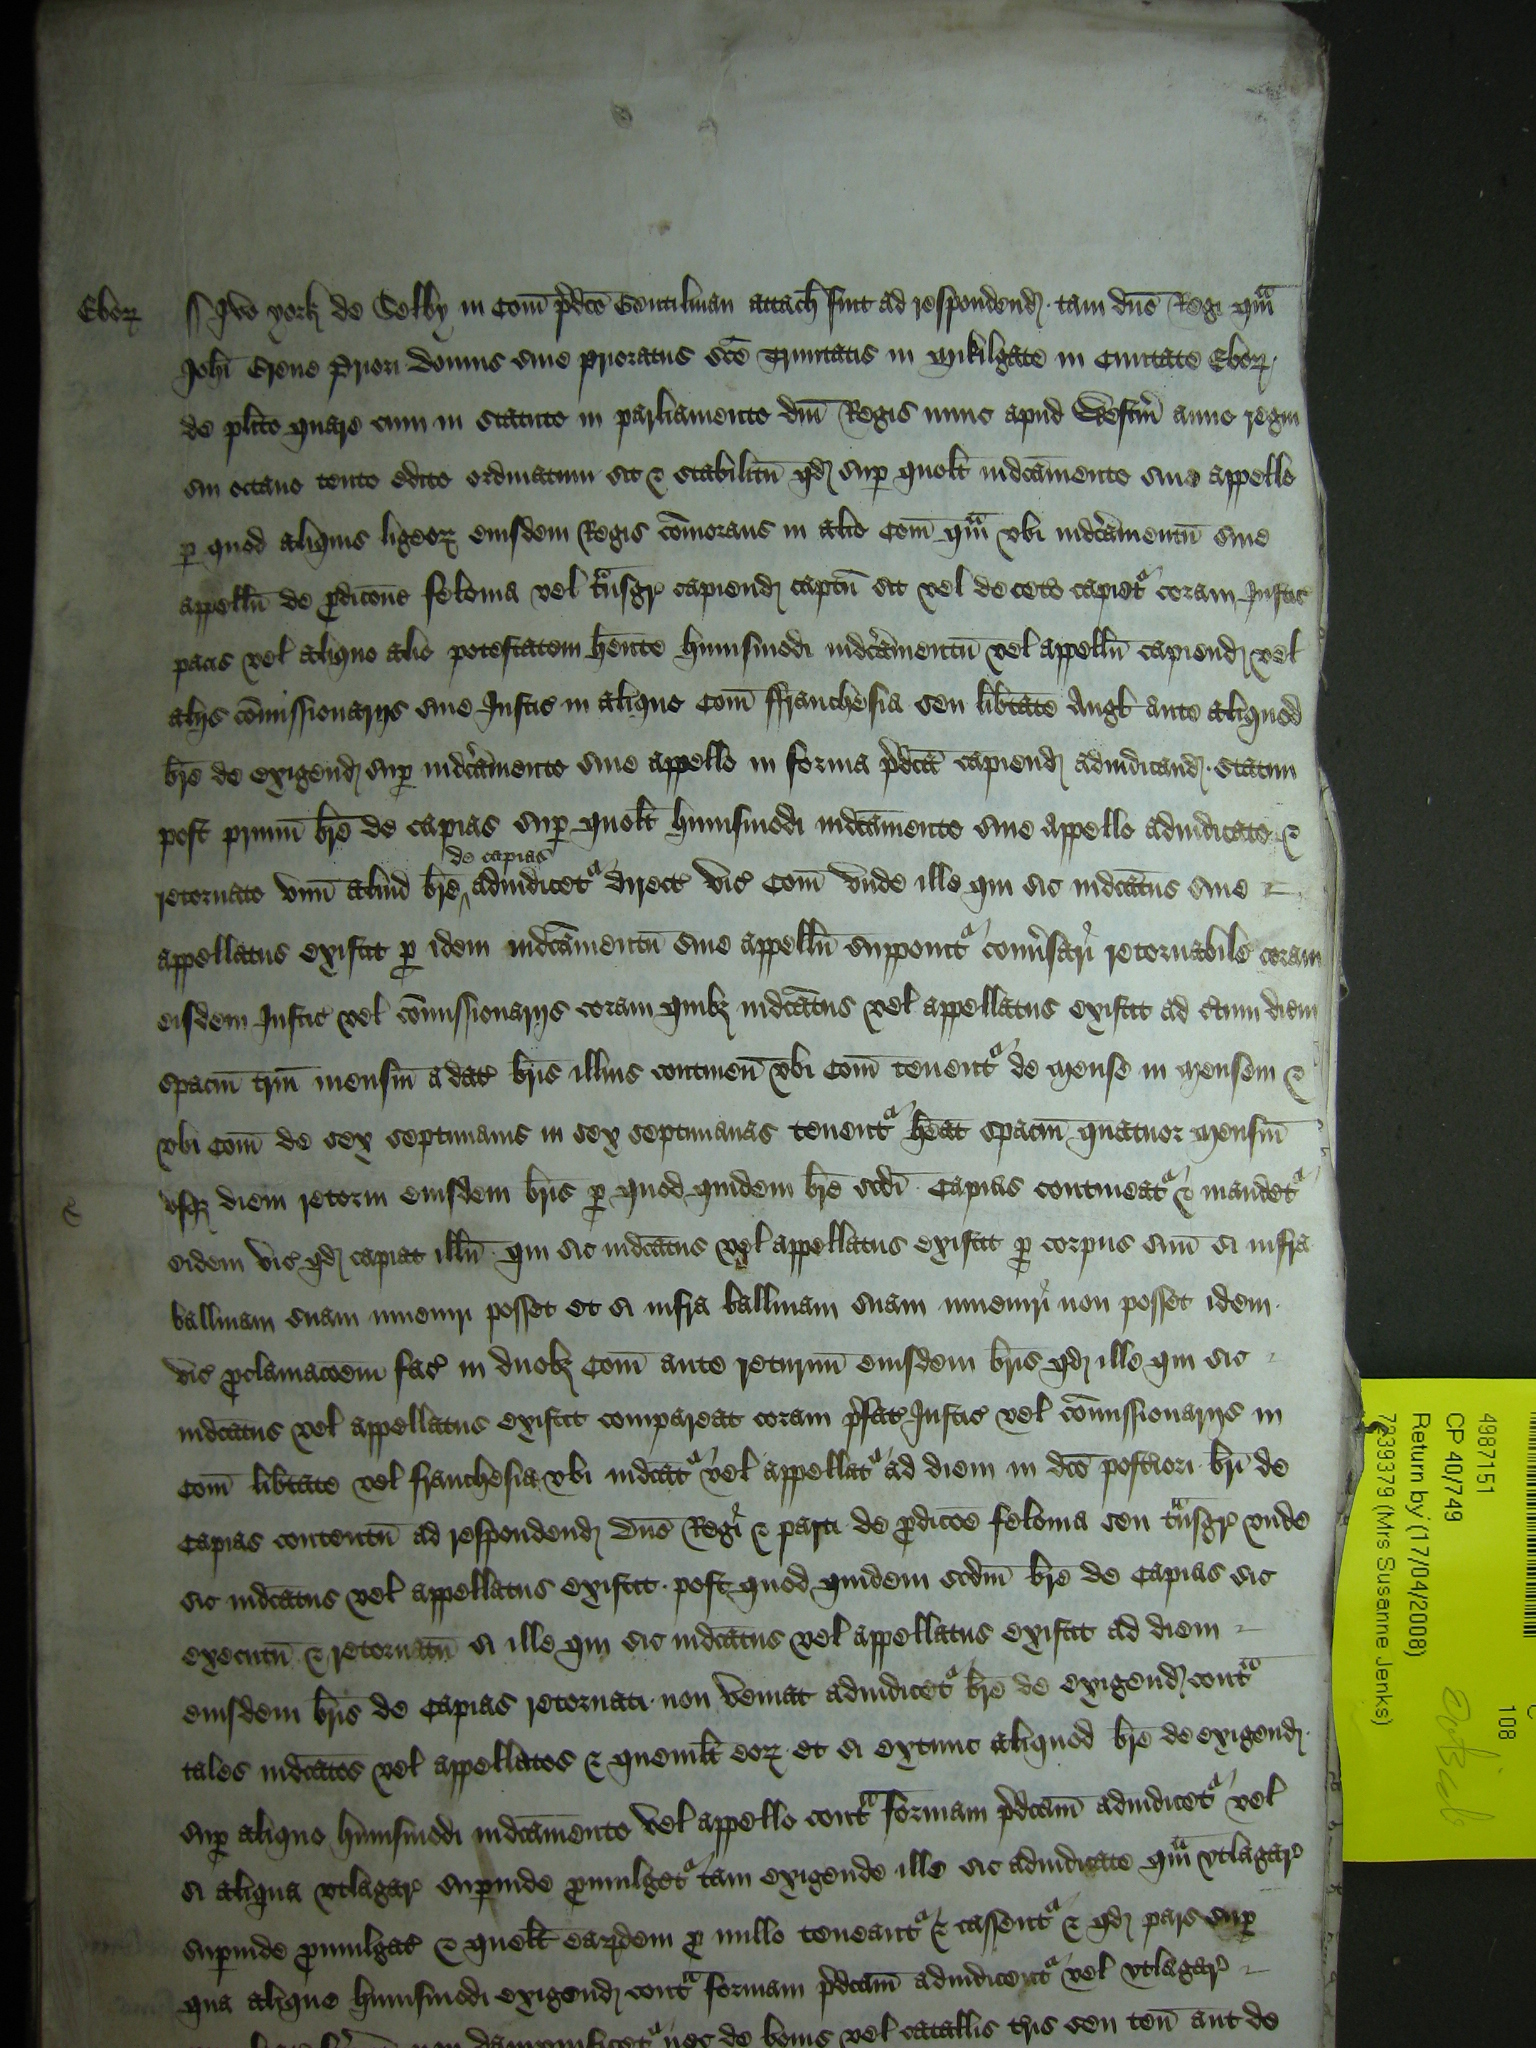 Eborꝝ
Ivo york de Selby in Com̄ p̄dc̄o Gentilman attach̄ fuit ad respondend tam dn̄o Regi qm̄
Joh̄i Grene Priori domus siue prioratus sc̄e Trinitatis in Mikilgate in Ciuitate Eborꝝ
de pl̄ito quare cum in statuto in parliamento dn̄i Regis nunc apud Westm̄ anno regni
sui octauo tento edito ordinatum sit ⁊ stabilitū qd sup quolt indc̄amento siue appello
p quod aliquis ligeoꝝ eiusdem Regis com̄orans in alio Com̄ qm̄ vbi indc̄amentū siue
appellū de p̄dicōne felonia vel tn̄sgr capiend captū sit vel de ceto capiat coram Justic
pacis vel aliquo alio potestatem h̄ente huiusmodi indc̄amentū vel appellū capiend vel
alijs com̄issionarijs siue Justic in aliquo Com̄ ffranchesia seu lib̄tate Angl ante aliquod
br̄e de exigend sup indc̄amento siue appello in forma p̄dc̄a capiend adiudicand statim
post primū br̄e de capias sup quolt huiusmodi indc̄amento siue appello adiudicato ⁊
de capias
retornato vnū aliud br̄e adiudicet direct vic Com̄ vnde ille qui sic indc̄atus siue
appellatus existit p idem indc̄amentū siue appellū supponit conūsari retornabile coram
eisdem Justic vel com̄issionarijs coram quibꝫ indc̄atus vel appellatus existit ad c̄tum diem
spaciū triū mensiū a dat br̄is illius continen̄ vbi Com̄ tenent de mense in mensem ⁊
vbi Com̄ de sex septimanis in sex septimanas tenent h̄eat spaciū quatuor mensiū
vsqꝫ diem retorni eiusdem br̄is p quod quidem br̄e scd̄i Capias contineat ⁊ mandet
eidem vic qd capiat illū qui sic indc̄atus vel appellatus existit p corpus suū si infra
balliuam suam inueniri posset et si infra balliuam suam inueniri non posset idem
vic p̄clamacōem fac in duobꝫ Com̄ ante returnū eiusdem br̄is qd ille qui sic
indc̄atus vel appellatus existit compareat coram p̄fat Justic vel com̄issionarijs in
Com̄ lib̄tate vel franchesia vbi indc̄at vel appellat ad diem in dc̄o posteriori br̄i de
Capias contentū ad respondend dn̄o Regi ⁊ parti de p̄dicōe felonia seu tn̄sgr vnde
sic indc̄atus vel appellatus existit post quod quidem scd̄m br̄e de Capias sic
executū ⁊ retornatū si ille qui sic indc̄atus vel appellatus existit ad diem
eiusdem br̄is de Capias retornati non veniat adiudicet br̄e de exigend cont
tales indc̄atos vel appellatos ⁊ quemlt eoꝝ et si extunc aliquod br̄e de exigend
sup aliquo huiusmodi indc̄amento vel appello cont formam p̄dc̄am adiudicet vel
si aliqua vtlagar supinde p̄mulget tam exigende ille sic adiudicate qm̄ vtlagar
supinde p̄mulgat ⁊ quelt earundem p nullo teneant ⁊ cassent ⁊ qd pars sup
qua alique huiusmodi exigend cont formam p̄dc̄am adiudicent vel vtlagar
non dampnificet nec de bonis vel catallis t̄ris seu ten̄ aut de
4987151
CP 40/749
Return by (17/04/2008)
7239379 (Mrs Susanne Jenks)
108